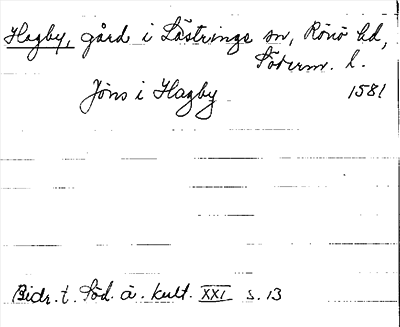 Hagby, gård i Lästringe sn, Rönö hd,
Söderm. l.
Jöns i Hagby 1581
Bidr. t. Söd. ä. kult. XXI s. 13